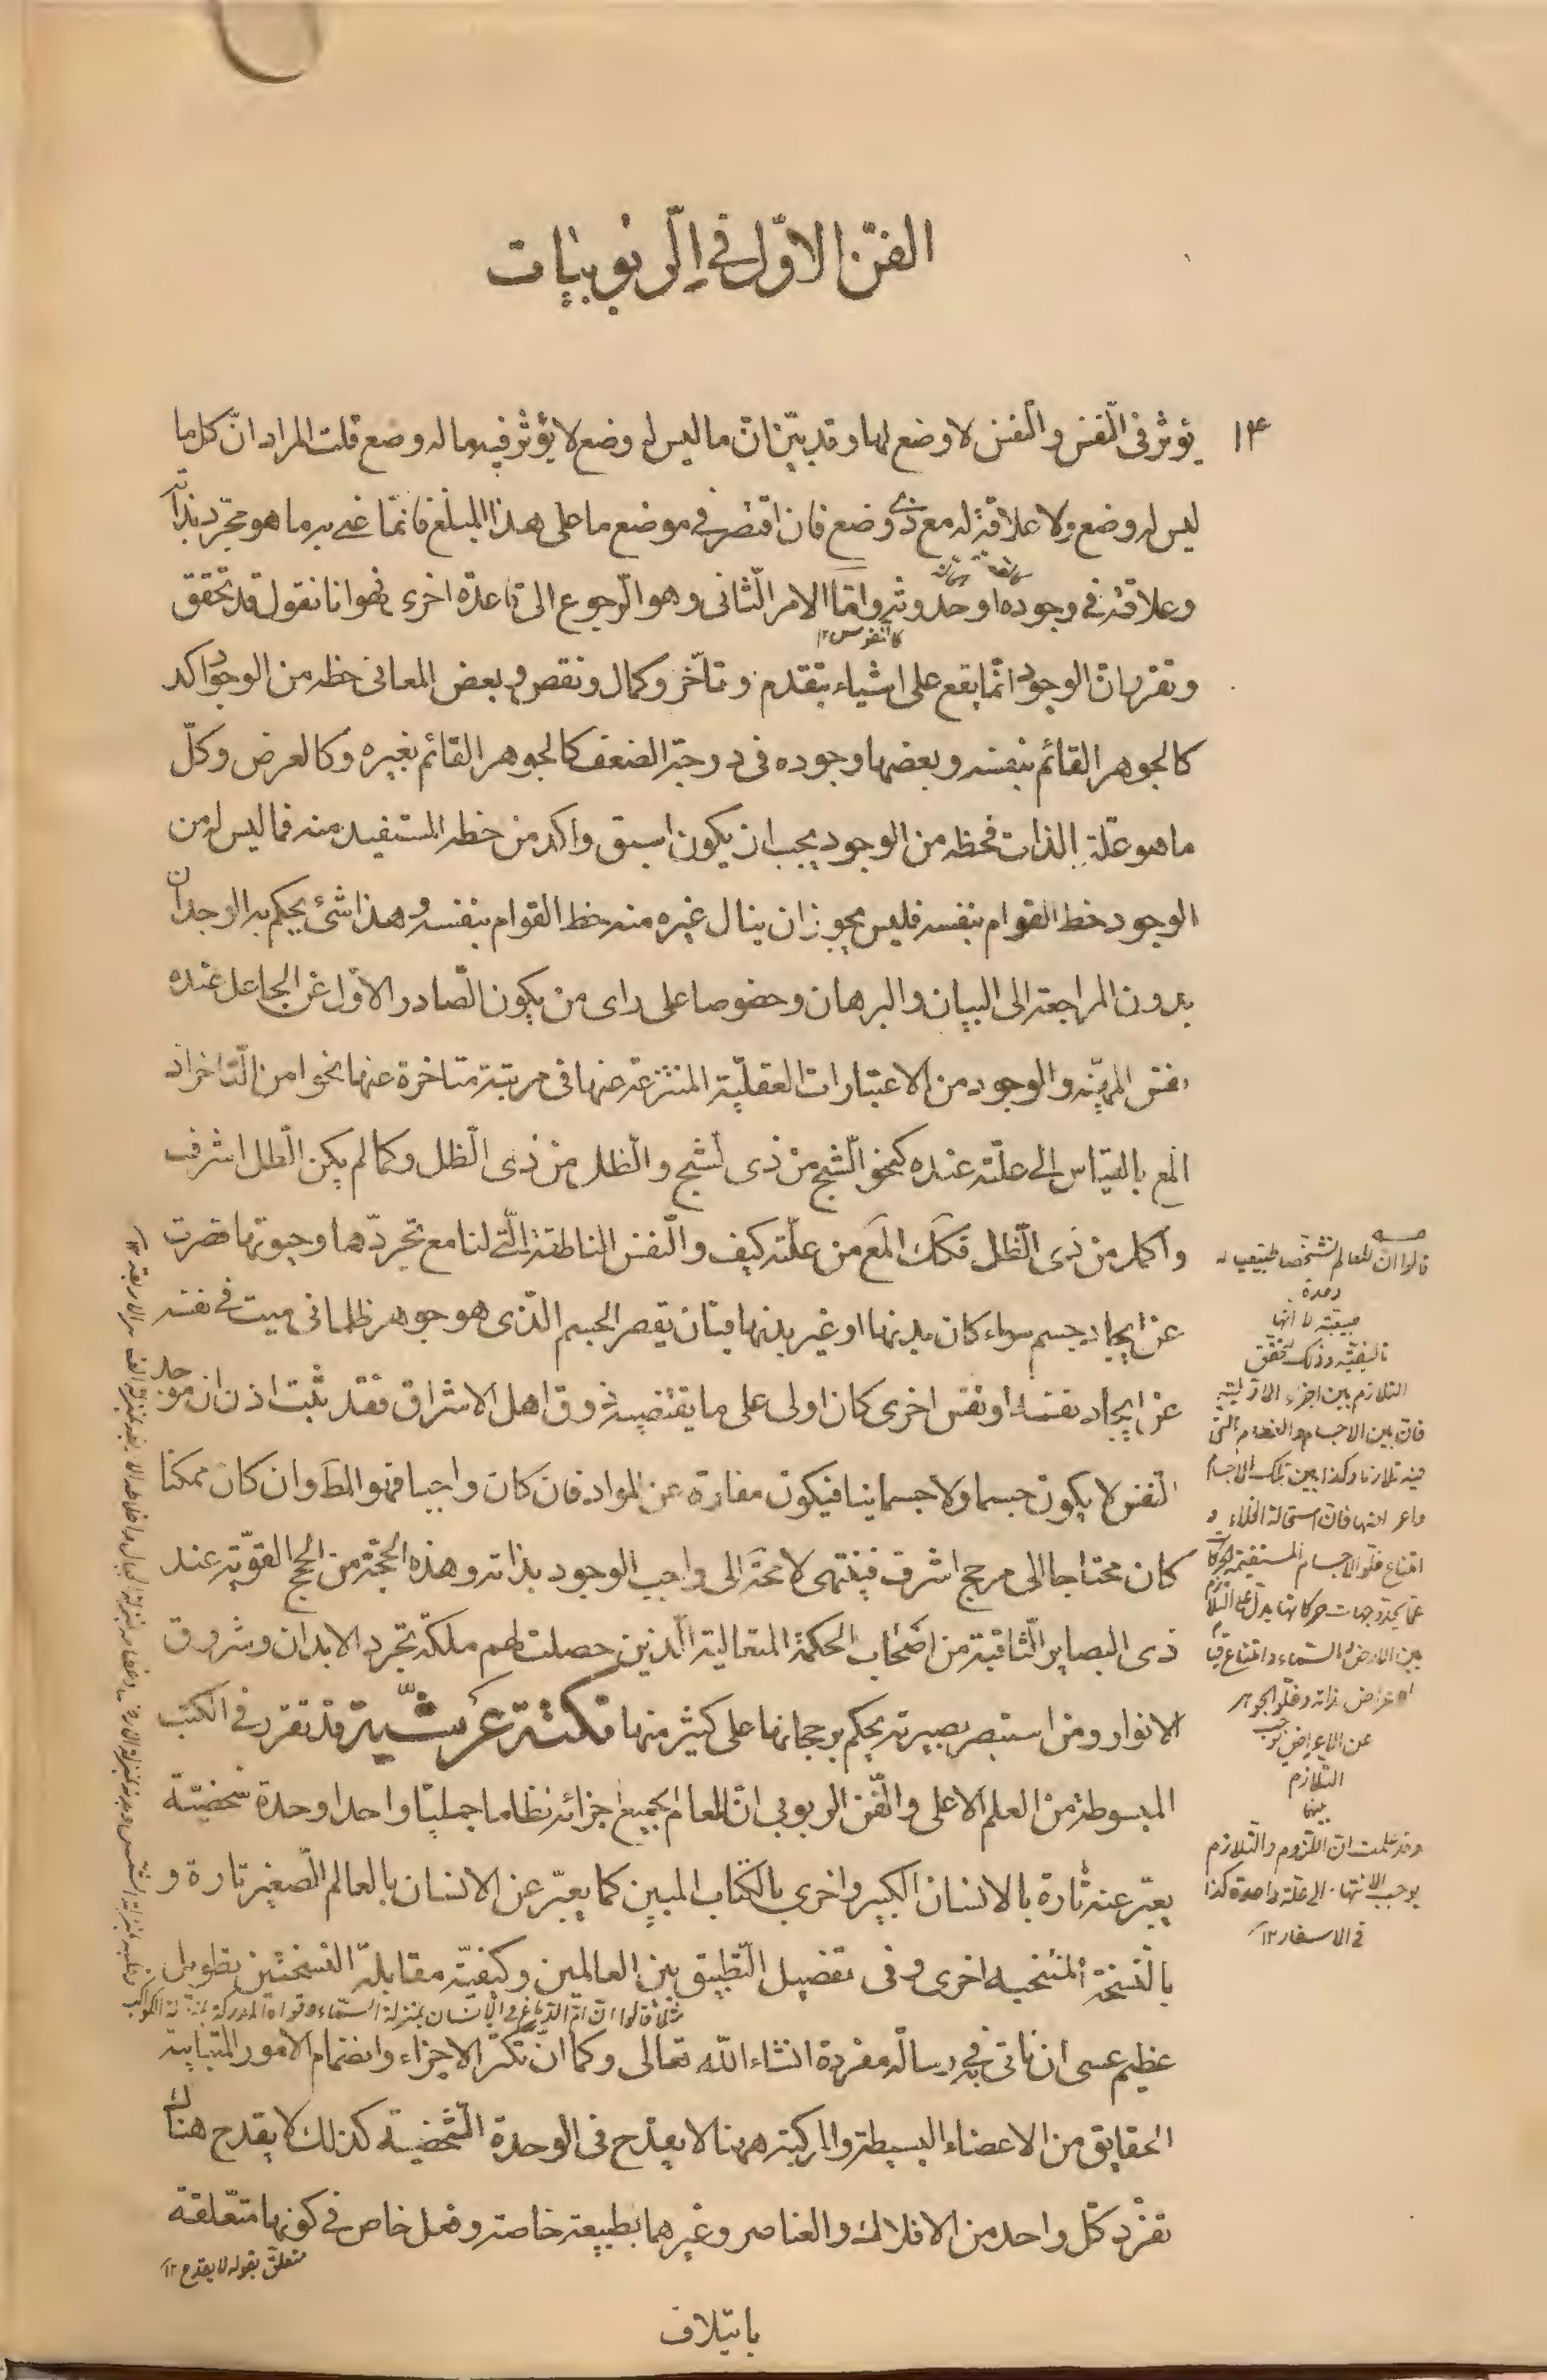 الفنّ الاوّل في الربوبيات
١٤
يؤثر فى النّفس والنّفس لا وضع لها وقد بيّن انّ ما ليس له وضع لا يؤثر فيه ما له وضع قلت المراد انّ كل ما
ليس له وضع ولا علاقة له مع ذى وضع فان اقتصر فى موضع ما على هذا المبلغ فانّما عنى به ما هو مجرّد بذاته
وعلاقته فى وجوده او حدوثه وامّا الامر الثّانى وهو الرّجوع الى قاعدة اخرى فهو انا نقول قد تحقق
كالنفوس ١٢
وتقرر انّ الوجود انّما يقع على اشياء بتقدم وتأخّر وكمال ونقص وبعض المعانى حظه من الوجود اكد
كالجوهر القائم بنفسه وبعضها وجوده فى درجة الضعف كالجوهر القائم بغيره وكالعرض وكلّ
ما هو علّة بالذات فحظه من الوجود يجب ان يكون اسبق واكد من حظ المستفيد منه فما ليس له من
الوجود حظ القوام بنفسه فليس يجوز ان ينال غيره منه حظ القوام بنفسه وهذا شئ يحكم به الوجدان
بدون المراجعة الى البيان والبرهان وخصوصا على راى من يكون الصّادر الاوّل عن الجاعل عنده
نفس المهيّة والوجود من الاعتبارات العقليّة المنتزعة عنها فى مرتبة متاخرة عنها نحوا من التّاخر اذ
المع بالقياس الى علّته عنده كنحو الشّبح من ذى الشبح والظّل من ذى الظّل وكما لم يكن الظّل اشرف
واكمل من ذى الظّل فكك المع من علّته كيف والنّفس الناطقة الّتى لنا مع تجردّها وحيوتها قصرت
عن ايجاد جسم سواء كان بدنها او غير بدنها فبان يقصر الجسم الذّى هو جوهر ظلمانى ميت فى نفسه
عن ايجاد نفسه او نفس اخرى كان اولى على ما يقتضيه ذوق اهل الاشراق فقد ثبت اذن ان موجد
النّفس لا يكون جسما ولا جسمانيا فيكون مفارقة عن المواد فان كان واجبا فهو المط وان كان ممكنا
كان محتاجا الى مرجح اشرف فينتهى لا محة الى واجب الوجود بذاته وهذه الحجّة من الحجج القوّية عند
ذى البصاير الثّاقبة من اصحاب الحكمة المتعالية الّذين حصلت لهم ملكة تجرد الابدان وشروق
الانوار ومن استبصر بصيرته يحكم برجحانها على كثير منها نكتة عرشيّة قد تقرر فى الكتب
المبسوطة من العلم الاعلى والفّن الربوبى انّ للعالم بجميع اجزائه نظاما جمليّا واحدا وحدة شخصيّة
يعبّر عنه تارة بالانسان الكبير واخرى بالكتاب المبين كما يعبّر عن الانسان بالعالم الصّغير تارة و
بالنّسخة المنتخبه اخرى وفى تفصيل التّطبيق بين العالمين وكيفيّة مقابلة النسختين تطويل
مثلا قالوا انّ امّ الدّماغ فى الانسان بمنزلة السّماء وقواه المدركة بمنزلة الكواكب
عظيم عسى ان ناتى فى رسالة مفردة انشاء الله تعالى وكما انّ تكثّر الاجزاء وانضمام الامور المتباينة
الحقايق من الاعضاء البسيطة والمركبة ههنا لا يقدح فى الوحدة الشّخصيّة كذلك لا يقدح هناك
تفرّد كلّ واحد من الافلاك والعناصر وغيرهما بطبيعة خاصة وفعل خاص فى كونها متعّلقة
متعلق بقوله لا يقدح ١٢
بايتلاف
قالوا انّ للعالم تشخصا طبيعيا له
وحدة
طبيعية لا انّها
تاليفيّة وذلك لتحقق
التلازم بين اجزاء الاوّلية
فان بين الاجسام والعظام التى
فيه تلازما وكذا بين تلك الاجسام
واعراضها فان استحالة الخلاء و
امتناع خلوّ الاجسام المستقيمة الحركات
عمّا يحدّد جهات حركاتها يدلّ على التلازم
بين الارض والسّماء وامتناع قيام
الاعراض بذاته وخلوّ الجوهر
عن الاعراض يوجب
التلازم
بينهما
وقد علمت ان اللزوم والتلازم
يوجب الانتهاء الى علّة واحدة كذا
فى الاسفار ١٢